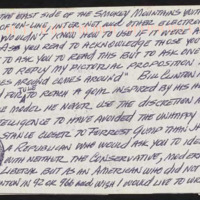 THE WEST SIDE OF THE SMOKEY MOUNTAINS YOU
OF "ON-LINE, INTER-NET AND OTHER ELECTRON
WOULDN'T KNOW HOW TO USE IF IT WERE
ASK YOU READ TO ACKNOWLEDGE THOSE YOU
TO ASK YOU TO READ THIS BUT TO MAKE ONE
TO REPLY MY PICTORIAL PROPOSITION
GOES AROUND COMES AROUND" BILL CLINTON
FOR TO REACH A GOAL INSPIRED BY HIS
MODEL HE NEVER USE THE DISCRETION
INTELLIGENCE TO HAVE AVOIDED THE UNHAPPY
STANCE CLOSER TO FORREST GUMP THAN
A REPUBLICAN WHO WOULD ASK YOU TO
WITH NEITHER THE CONSERVATIVE, MODER
LIBERAL BUT AS AN AMERICAN WHO DID NOT
IN 92 OR 96 AND WISH I WOULD LIVE TO